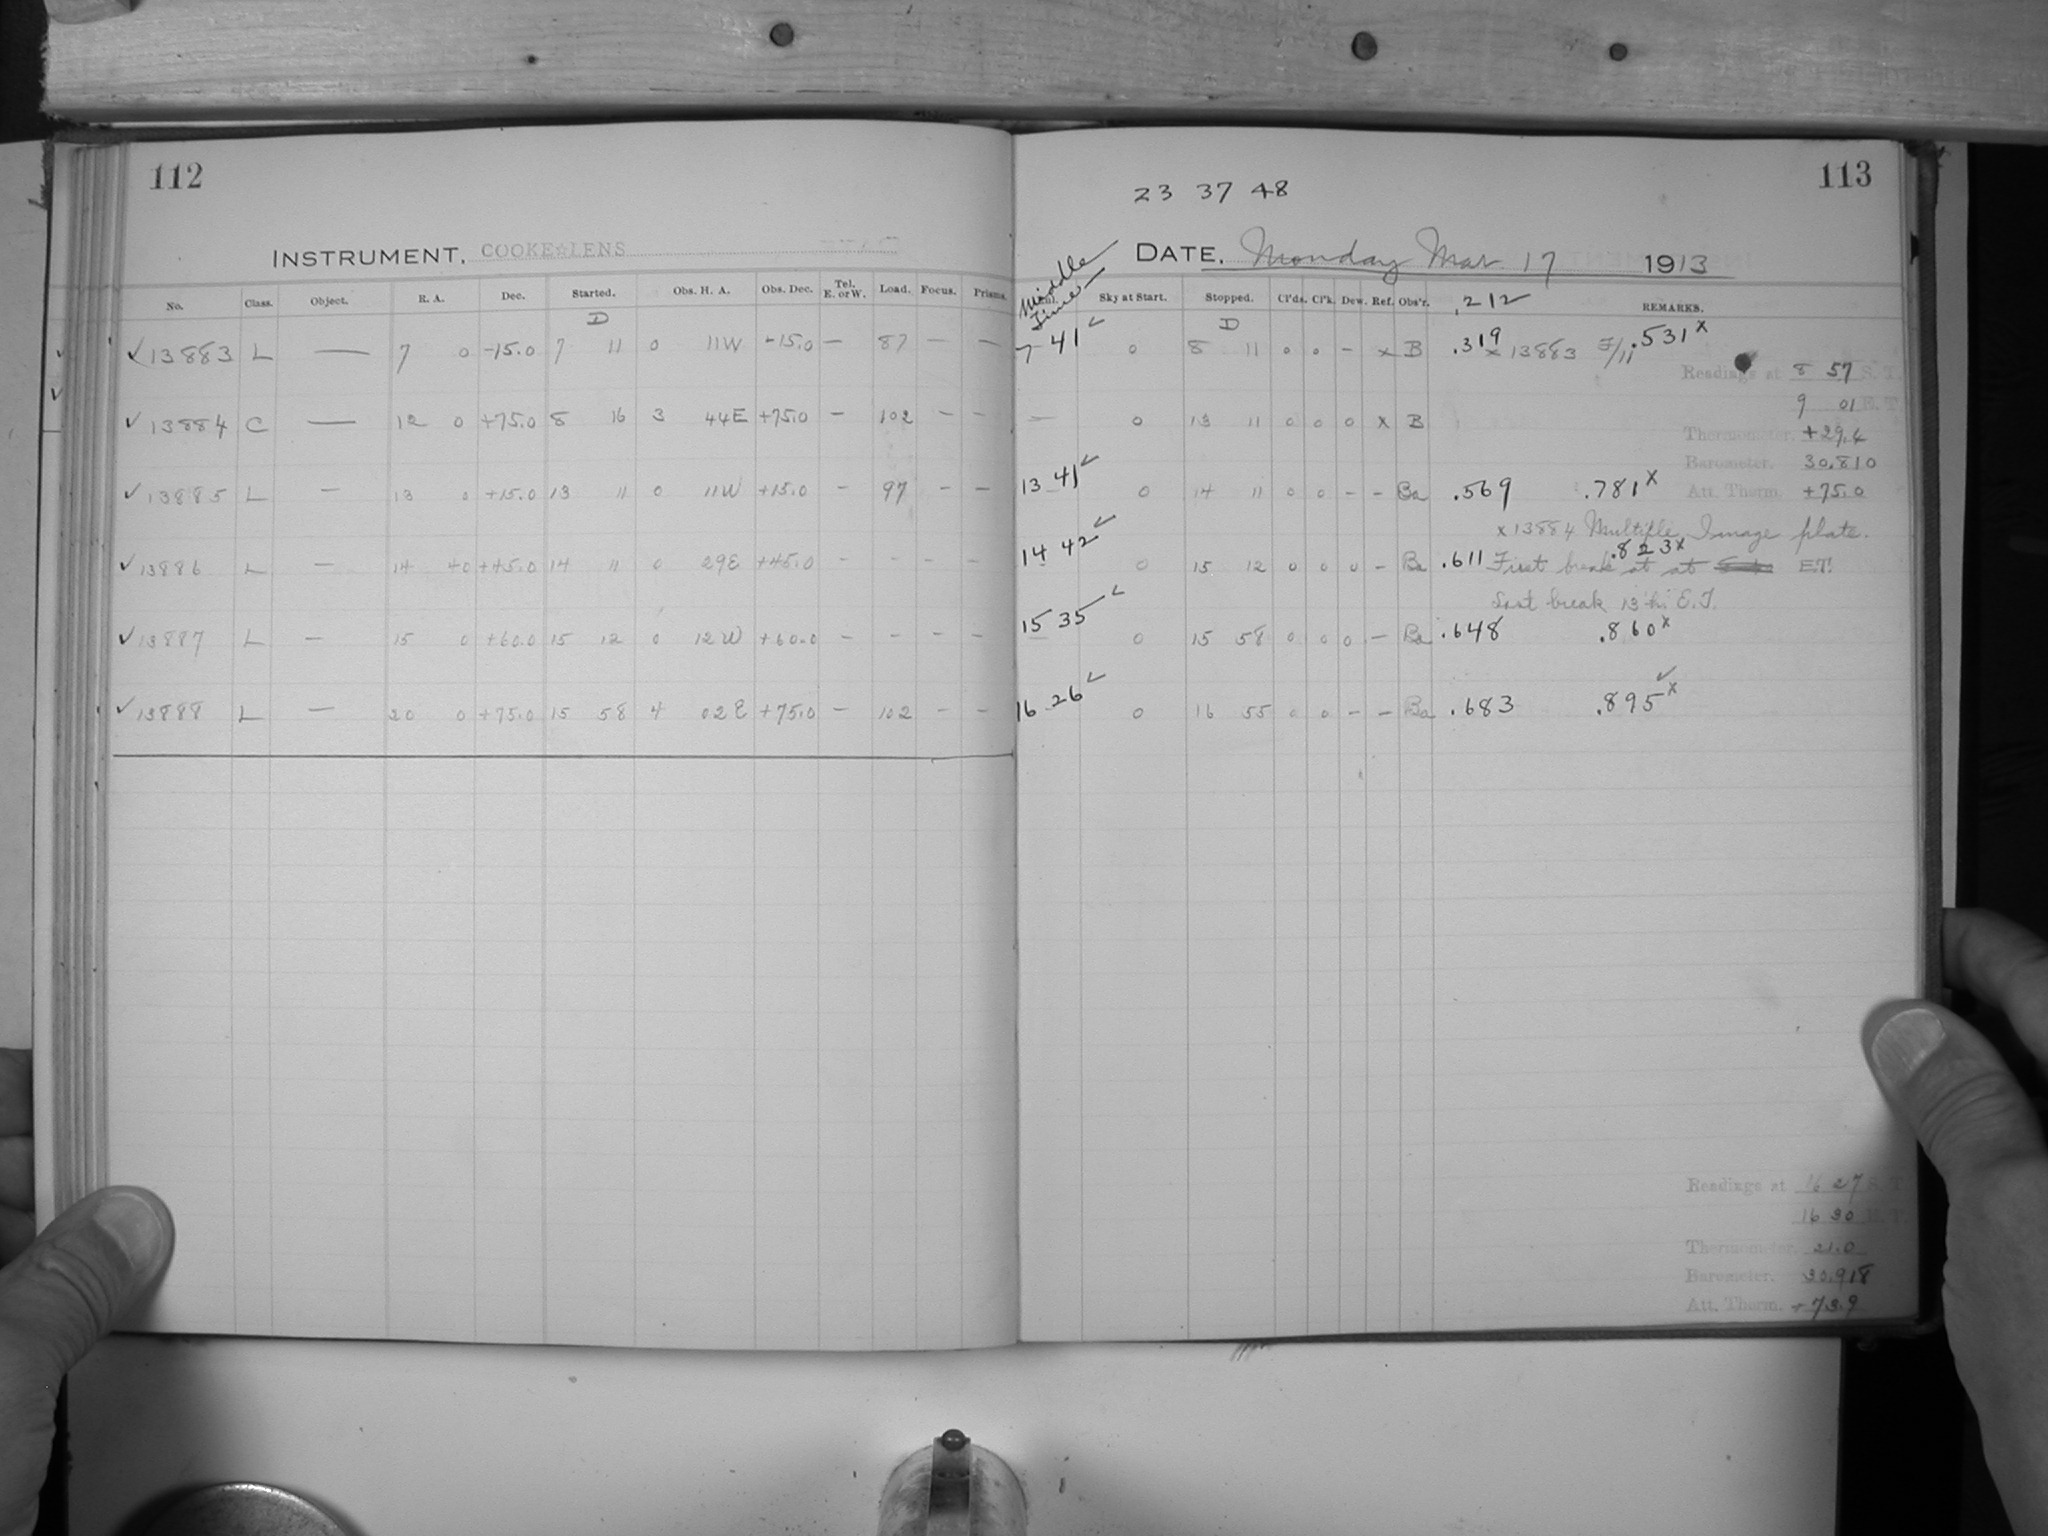 112
INSTRUMENT, COOKE☆LENS
No. Class. Object. R. A. Dec. Started. Obs. H. A. Obs. Dec. Tel. E. or W. Load. Focus. Prisms.
D
✓13883 L — 7 0 -15.0 7 11 0 11W -15.0 — 87 — —
✓13884 C — 12 0 +75.0 8 16 3 44E +75.0 — 102 — —
✓13885 L — 13 0 +15.0 13 11 0 11W +15.0 — 97 — —
✓13886 L — 14 40 +45.0 14 11 0 29E +45.0 — — — —
✓13887 L — 15 0 +60.0 15 12 0 12W +60.0 — — — —
✓13888 L — 20 0 +75.0 15 58 4 02E +75.0 — 102 — —
113
23 37 48
DATE, Monday Mar 17 1913
Middle Time Sky at Start. Stopped. Cl'ds. Cl'k. Dew. Ref. Obs'r. .212 REMARKS.
D
7 41✓ 0 8 11 0 0 — x B .319 x 13883 F/11 .531x
Readings at 8 57 S. T.
9 01 E. T.
— 0 13 11 0 0 0 x B
Thermometer. +29.4
Barometer. 30.810
13 41✓ 0 14 11 0 0 — — Ba .569 .781x Att. Therm. +75.0
x 13884 Multiple Image plate.
14 42✓ 0 15 12 0 0 0 — Ba .611 .823x First break at at E.T.
Last break 13 h. E.T.
15 35✓ 0 15 58 0 0 0 — Ba .648 .860x
16 26✓ 0 16 55 0 0 — — Ba .683 .895x✓
Readings at 16 27 S. T.
16 30 E. T.
Thermometer. 21.0
Barometer. 30.918
Att. Therm. +73.9